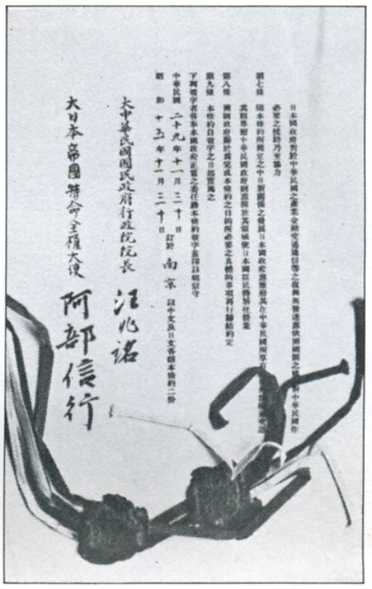 日本國政府對於中華民國之產業金融交通通信等之復興與發達應依兩國間之 對中華民國作
必要之援助乃至協力
第七條 隨本條約所規定之中日新關係之發展日本國政府應撤廢其在中華民國所享有
其租界而中華民國政府則應開放其領域使日本國臣民得居住營業
第八條 兩國政府關於為完成本條約之目的所必要之具體的事項再行締結約定
第九條 本條約自簽字之日起實施之
下列簽字者各奉本國政府正當之委任將本條約簽字蓋印以昭信守
中華民國 二十九年十一月三十日
訂於 南京 以中文及日文各繕本條約二份
昭和 十五年十一月三十日
大中華民國國民政府行政院院長 汪兆銘
大日本帝國特命全權大使 阿部信行